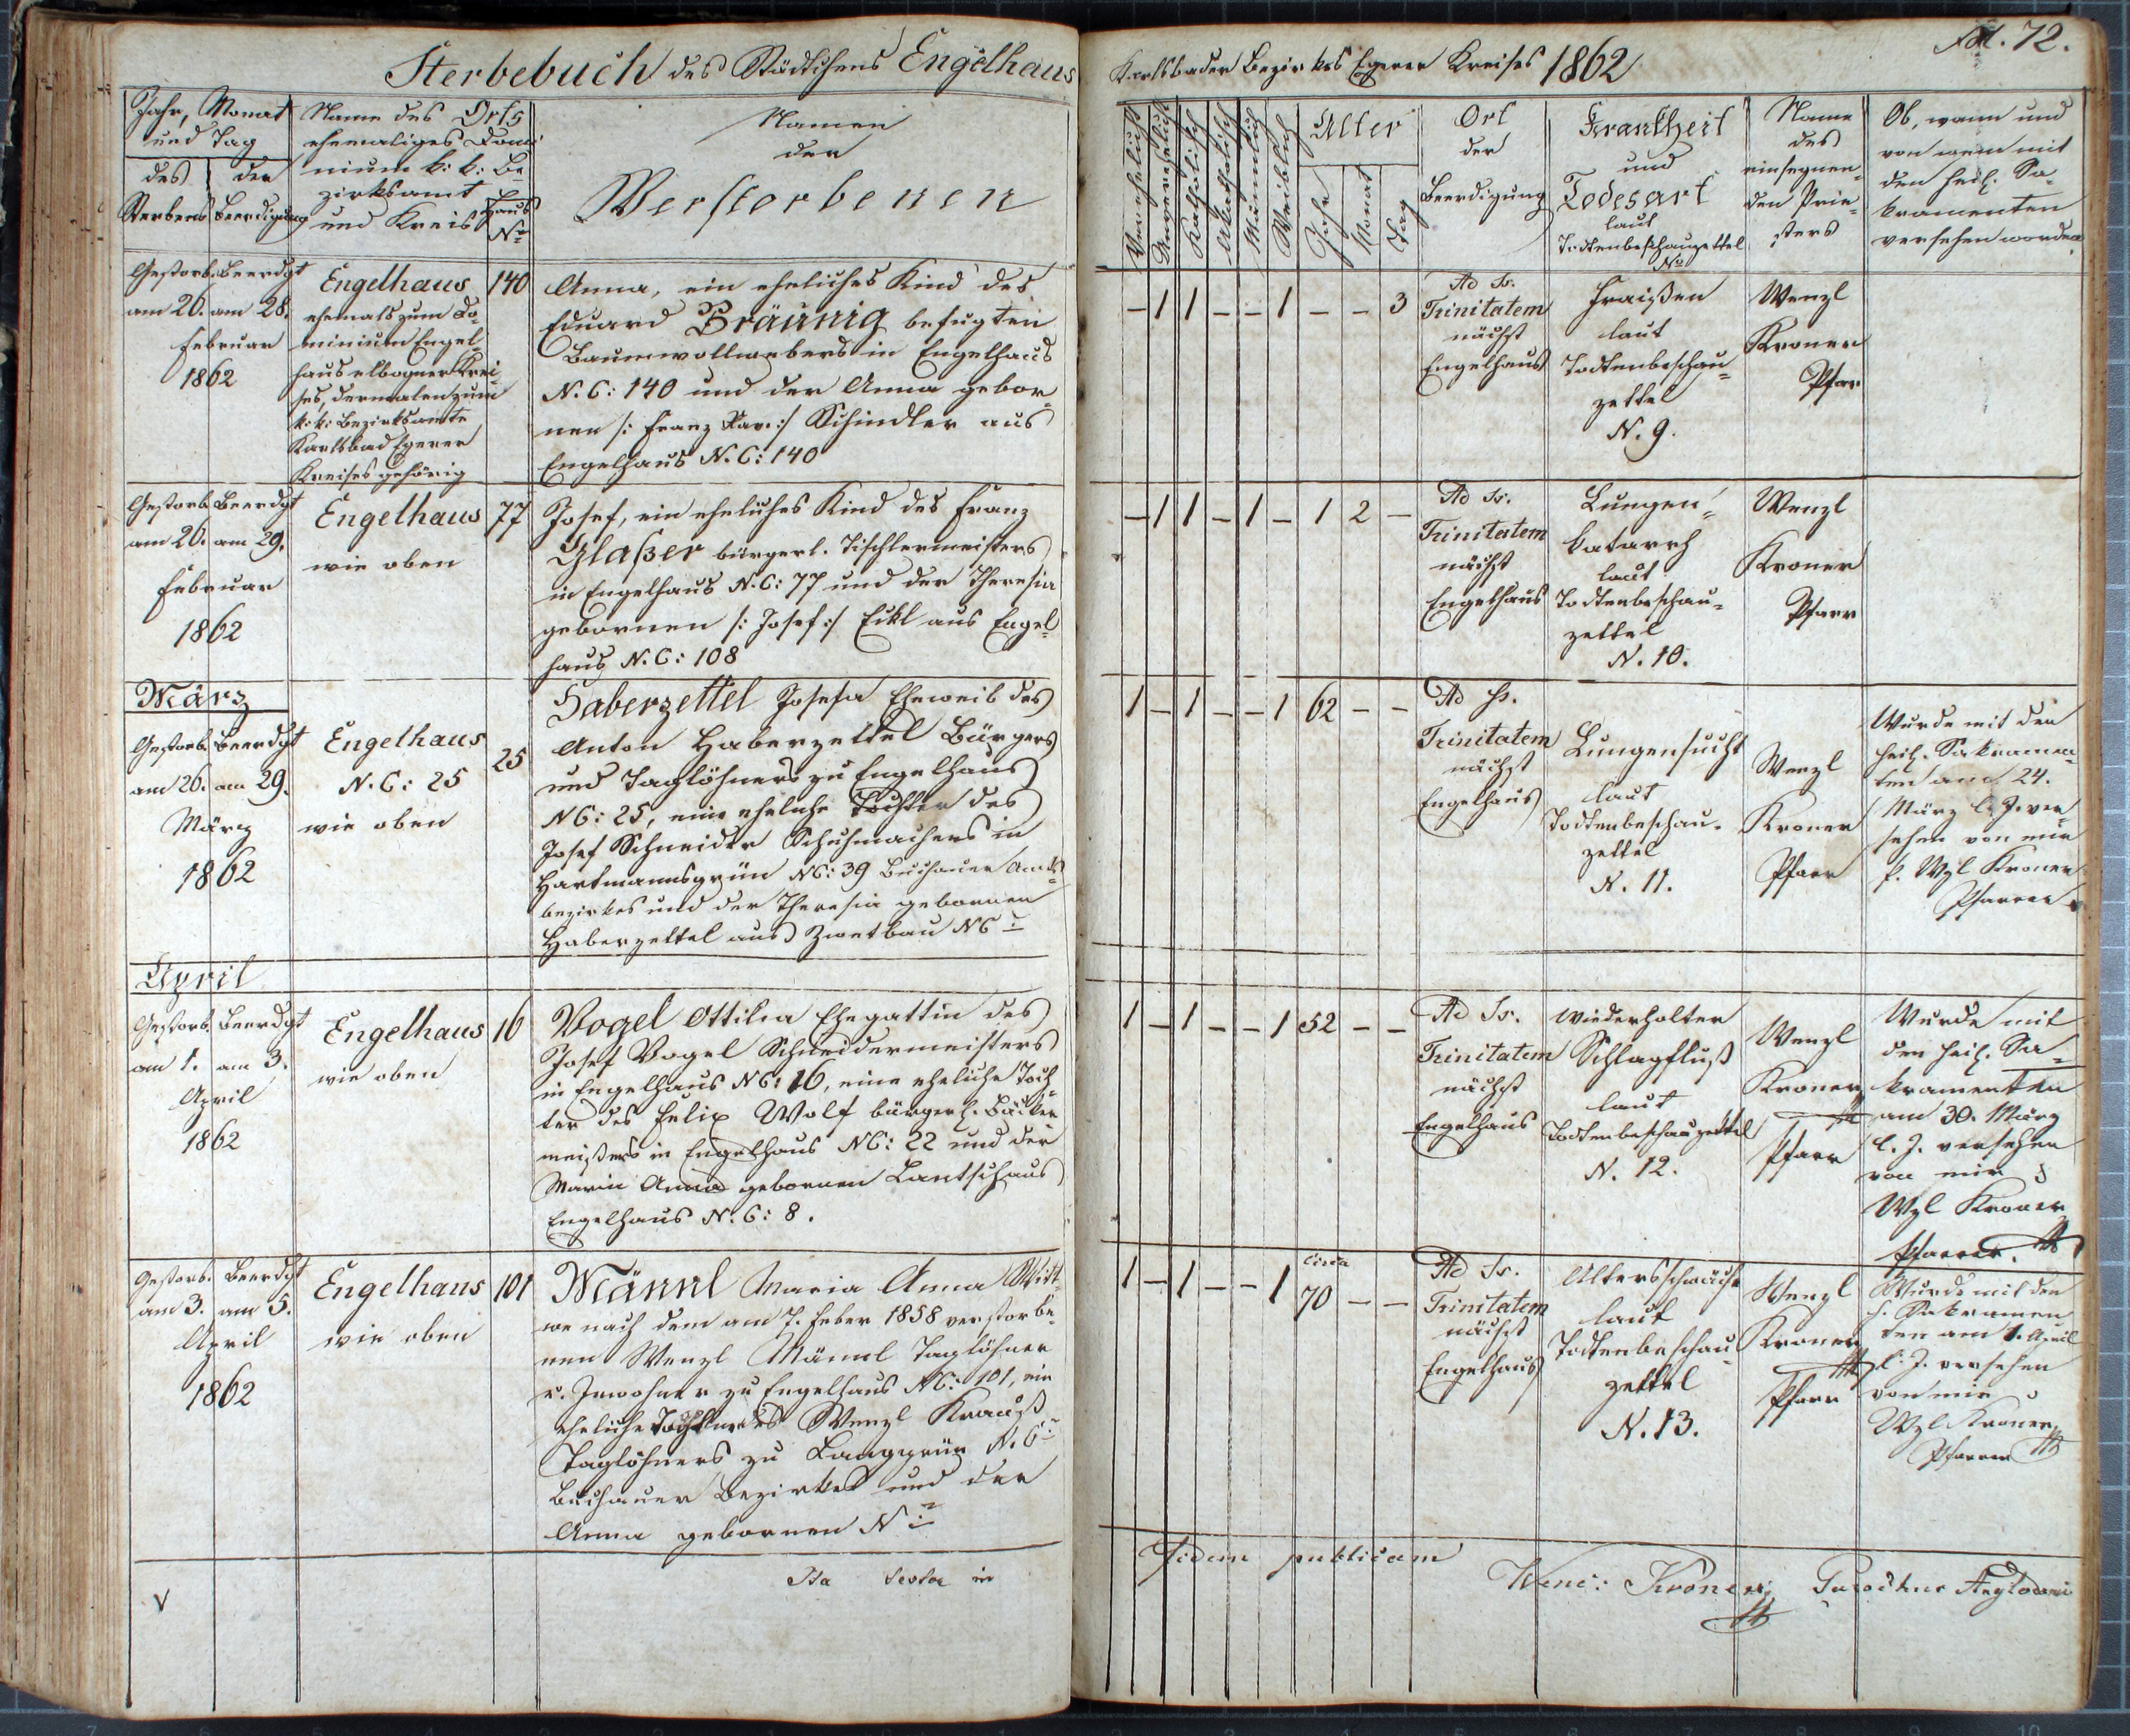 Sterbebuch des Städtchens Engelhaus
Karlsbader Bezirkes Egerer Kreises 1862
Fol. 72.
Jahr, Monat
und Tag
des
Sterbens
der
Beerdigung
Name des Orts
ehemaliges Domi
nium k: k: Be
zirksamt
und Kreis
Haus
No
Namen
der
Verstorbenen
Verehelicht
Unverehelicht
Katholisch
Akatholisch
Männlich
Weiblich
Alter
Jahr
Monat
Tag
Ort
der
Beerdigung
Krankheit
und
Todesart
laut
Todtenbeschauzettel
No
Name
des
einsegnen-
den Prie-
sters
Ob, wann und
von wem mit
den heil. Sa-
kramenten
versehen worden.
Gestorb. Beerdgt
am 26. am 28.
Februar
1862
Engelhaus
ehemals zum Do-
minium Engel-
haus elbogner Krei-
ses, dermalen zum
k: k: Bezirksamte
Karlsbad Egerer
Kreises gehörig
140
Anna, ein eheliches Kind des
Eduard Bräunig befugten
Baumwollwebers in Engelhaus
N. C: 140 und der Anna gebor-
nen /: Franz Xav: :/ Schindler aus
Engelhaus N. C: 140
– 1 1 – – 1 – – 3
Ad Ss.
Trinitatem
nächst
Engelhaus
Fraißen
laut
Todtenbeschau-
zettel
N. 9.
Wenzl
Kroner
Pfarr
Gestorb. Beerdgt
am 26. am 29.
Februar
1862
Engelhaus
wie oben
77
Josef, ein eheliches Kind des Franz
Glaßer bürgerl. Tischlermeisters
in Engelhaus N. C: 77 und der Theresia
gebornen /: Josef :/ Eckl aus Engel-
haus N. C: 108
– 1 1 – 1 – 1 2 –
Ad Ss.
Trinitatem
nächst
Engelhaus
Lungen-
katarrh
laut
Todtenbeschau-
zettel
N. 10.
Wenzl
Kroner
Pfarr
März
Gestorb. Beerdgt
am 26. am 29.
März
1862
Engelhaus
N. C: 25
wie oben
25
Haberzettel Josefa Eheweib des
Anton Haberzettel Bürgers
und Taglöhners zu Engelhaus
NC: 25, eine eheliche Tochter des
Josef Schneider Schuhmachers in
Hartmannsgrün NC: 39 Buchauer Amts-
bezirkes und der Theresia gebornen
Haberzettel aus Zwetbau NC:
1 – 1 – – 1 62 – –
Ad Ss.
Trinitatem
nächst
Engelhaus
Lungensucht
laut
Todtenbeschau-
zettel
N. 11.
Wenzl
Kroner
Pfarr
Wurde mit den
heil. Sakramen-
ten am 24.
März l. J. ver
sehen von mir
P. Wzl Kroner
Pfarrer
April
Gestorb. Beerdgt
am 1. am 3.
April
1862
Engelhaus
wie oben
16
Vogel Ottilia Ehegattin des
Josef Vogel Schneidermeisters
in Engelhaus NC: 16, eine eheliche Toch-
ter des Felix Wolf bürgerl. Bäcker
meisters in Engelhaus NC: 22 und der
Maria Anna gebornen Lantsch aus
Engelhaus N. C: 8.
1 – 1 – – 1 52 – –
Ad Ss.
Trinitatem
nächst
Engelhaus
Wiederholter
Schlagfluß
laut
Todtenbeschauzettel
N. 12.
Wenzl
Kroner
Pfarr
Wurde mit
den heil. Sa-
kramenten
am 30. März
l. J. versehen
von mir
Wzl Kroner
Pfarrer.
Gestorb. Beerdgt
am 3. am 5.
April
1862
Engelhaus
wie oben
101
Männl Maria Anna Witt-
we nach dem am 7. Feber 1858 verstorbe-
nen Wenzl Männl Taglöhner
u. Inwohner zu Engelhaus NC: 101, ein
eheliche Tochter des Wenzl Krauß
Taglöhners zu Langgrün N. C:
Buchauer Bezirkes und der
Anna gebornen N:
1 – 1 – – 1 circa 70 – –
Ad Ss.
Trinitatem
nächst
Engelhaus
Altersschwäche
laut
Todtenbeschau-
zettel
N. 13.
Wenzl
Kroner
Pfarr
Wurde mit den
h. Sakramen
ten am 1. April
l. J. versehen
von mir
Wzl Kroner
Pfarrer
Ita testor in
Fidem publicam
Wenc: Kroner Parochus